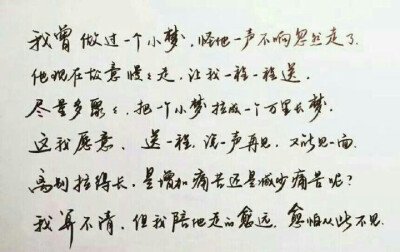 我曾做过一个小梦，怪他一声不响忽然走了，
他现在故意慢慢走，让我一程一程送，
尽量多聚聚，把一个小梦拉成一个万里长梦。
这我愿意，送一程，说一声再见，又能见一面，
离别拉得长，是增加痛苦还是减少痛苦呢？
我算不清，但我陪他走的愈远，愈怕从此不见。